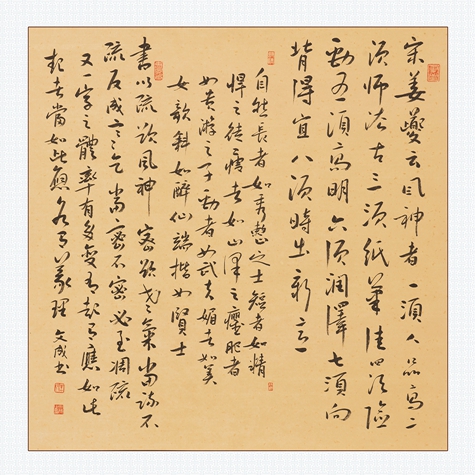 宋姜夔云風神者一須人品高二
須師法古三須紙筆佳四須險
勁五須高明六須潤澤七須向
背得宜八須時出新意
自然長者如秀整之士短者如精
悍之徒瘦者如山澤之癯肥者
如貴游之子勁者如武夫媚者如美
女欹斜如醉仙端楷如賢士
書以疏欲風神密欲老氣當疏不
疏反成寒乞當密不密必至凋疏
又一字之體率有多變有起有應如此
起者當如此應各有義理 文成書